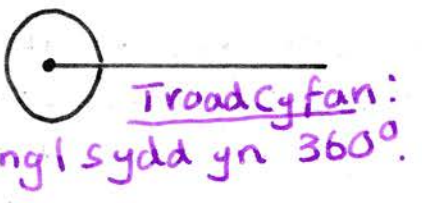 Troad Cyfan:
sydd yn 360°.